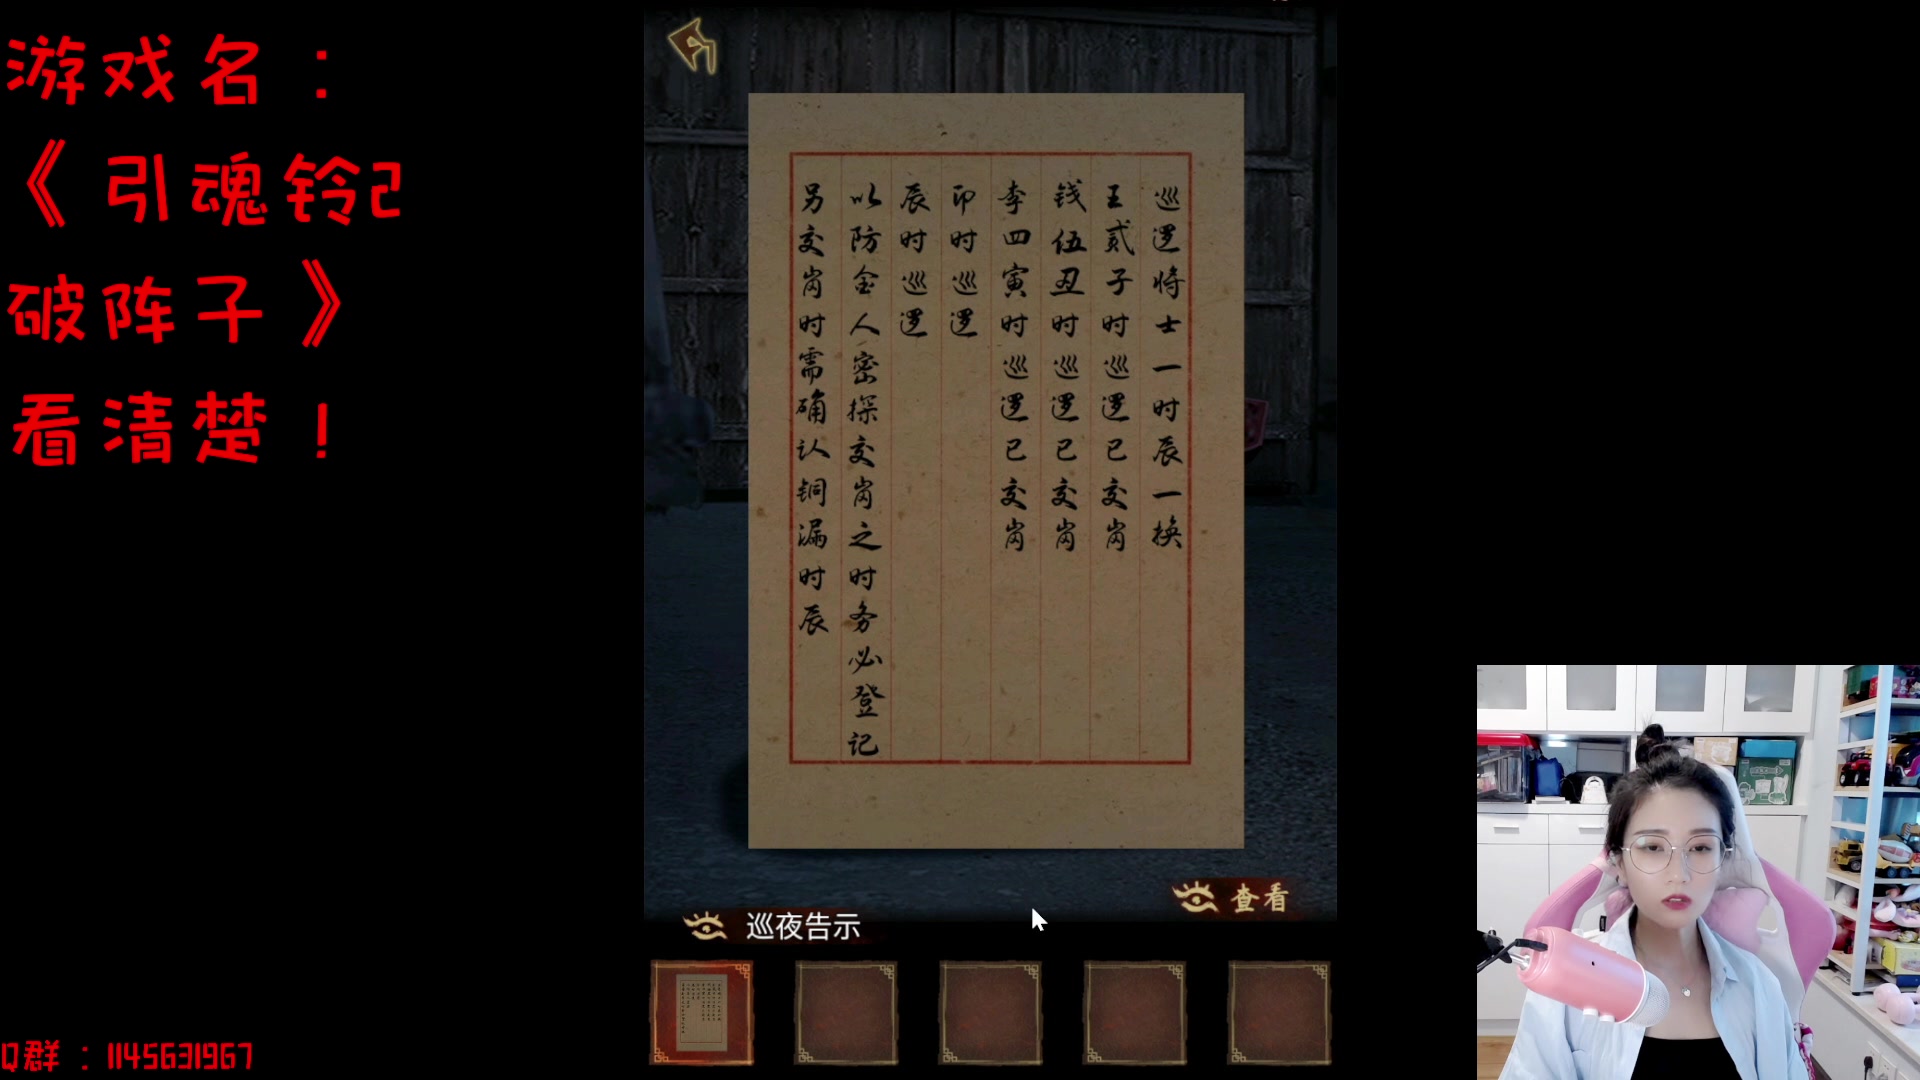 游戏名：
《引魂铃2
破阵子》
看清楚！
巡逻将士一时辰一换
王贰子时巡逻已交岗
钱伍丑时巡逻已交岗
李四寅时巡逻已交岗
卯时巡逻
辰时巡逻
以防金人密探交岗之时务必登记
另交岗时需确认铜漏时辰
查看
巡夜告示
Q群：1145631967